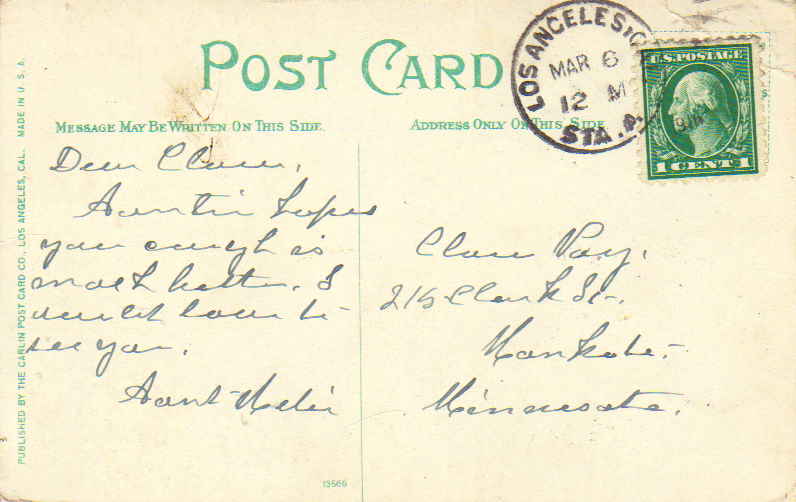 POST CARD
MESSAGE MAY BE WRITTEN ON THIS SIDE.
ADDRESS ONLY ON THIS SIDE
LOS ANGELES, C
MAR 6
12 M
STA. P.
U.S. POSTAGE
1 CENT 1
PUBLISHED BY THE CARLIN POST CARD CO., LOS ANGELES, CAL. MADE IN U.S.A.
Dear
Auntie hopes
your cough is
much better. I
would love to
see you.
Aunt
215 Clark St.
Mankato
Minnesota.
13566